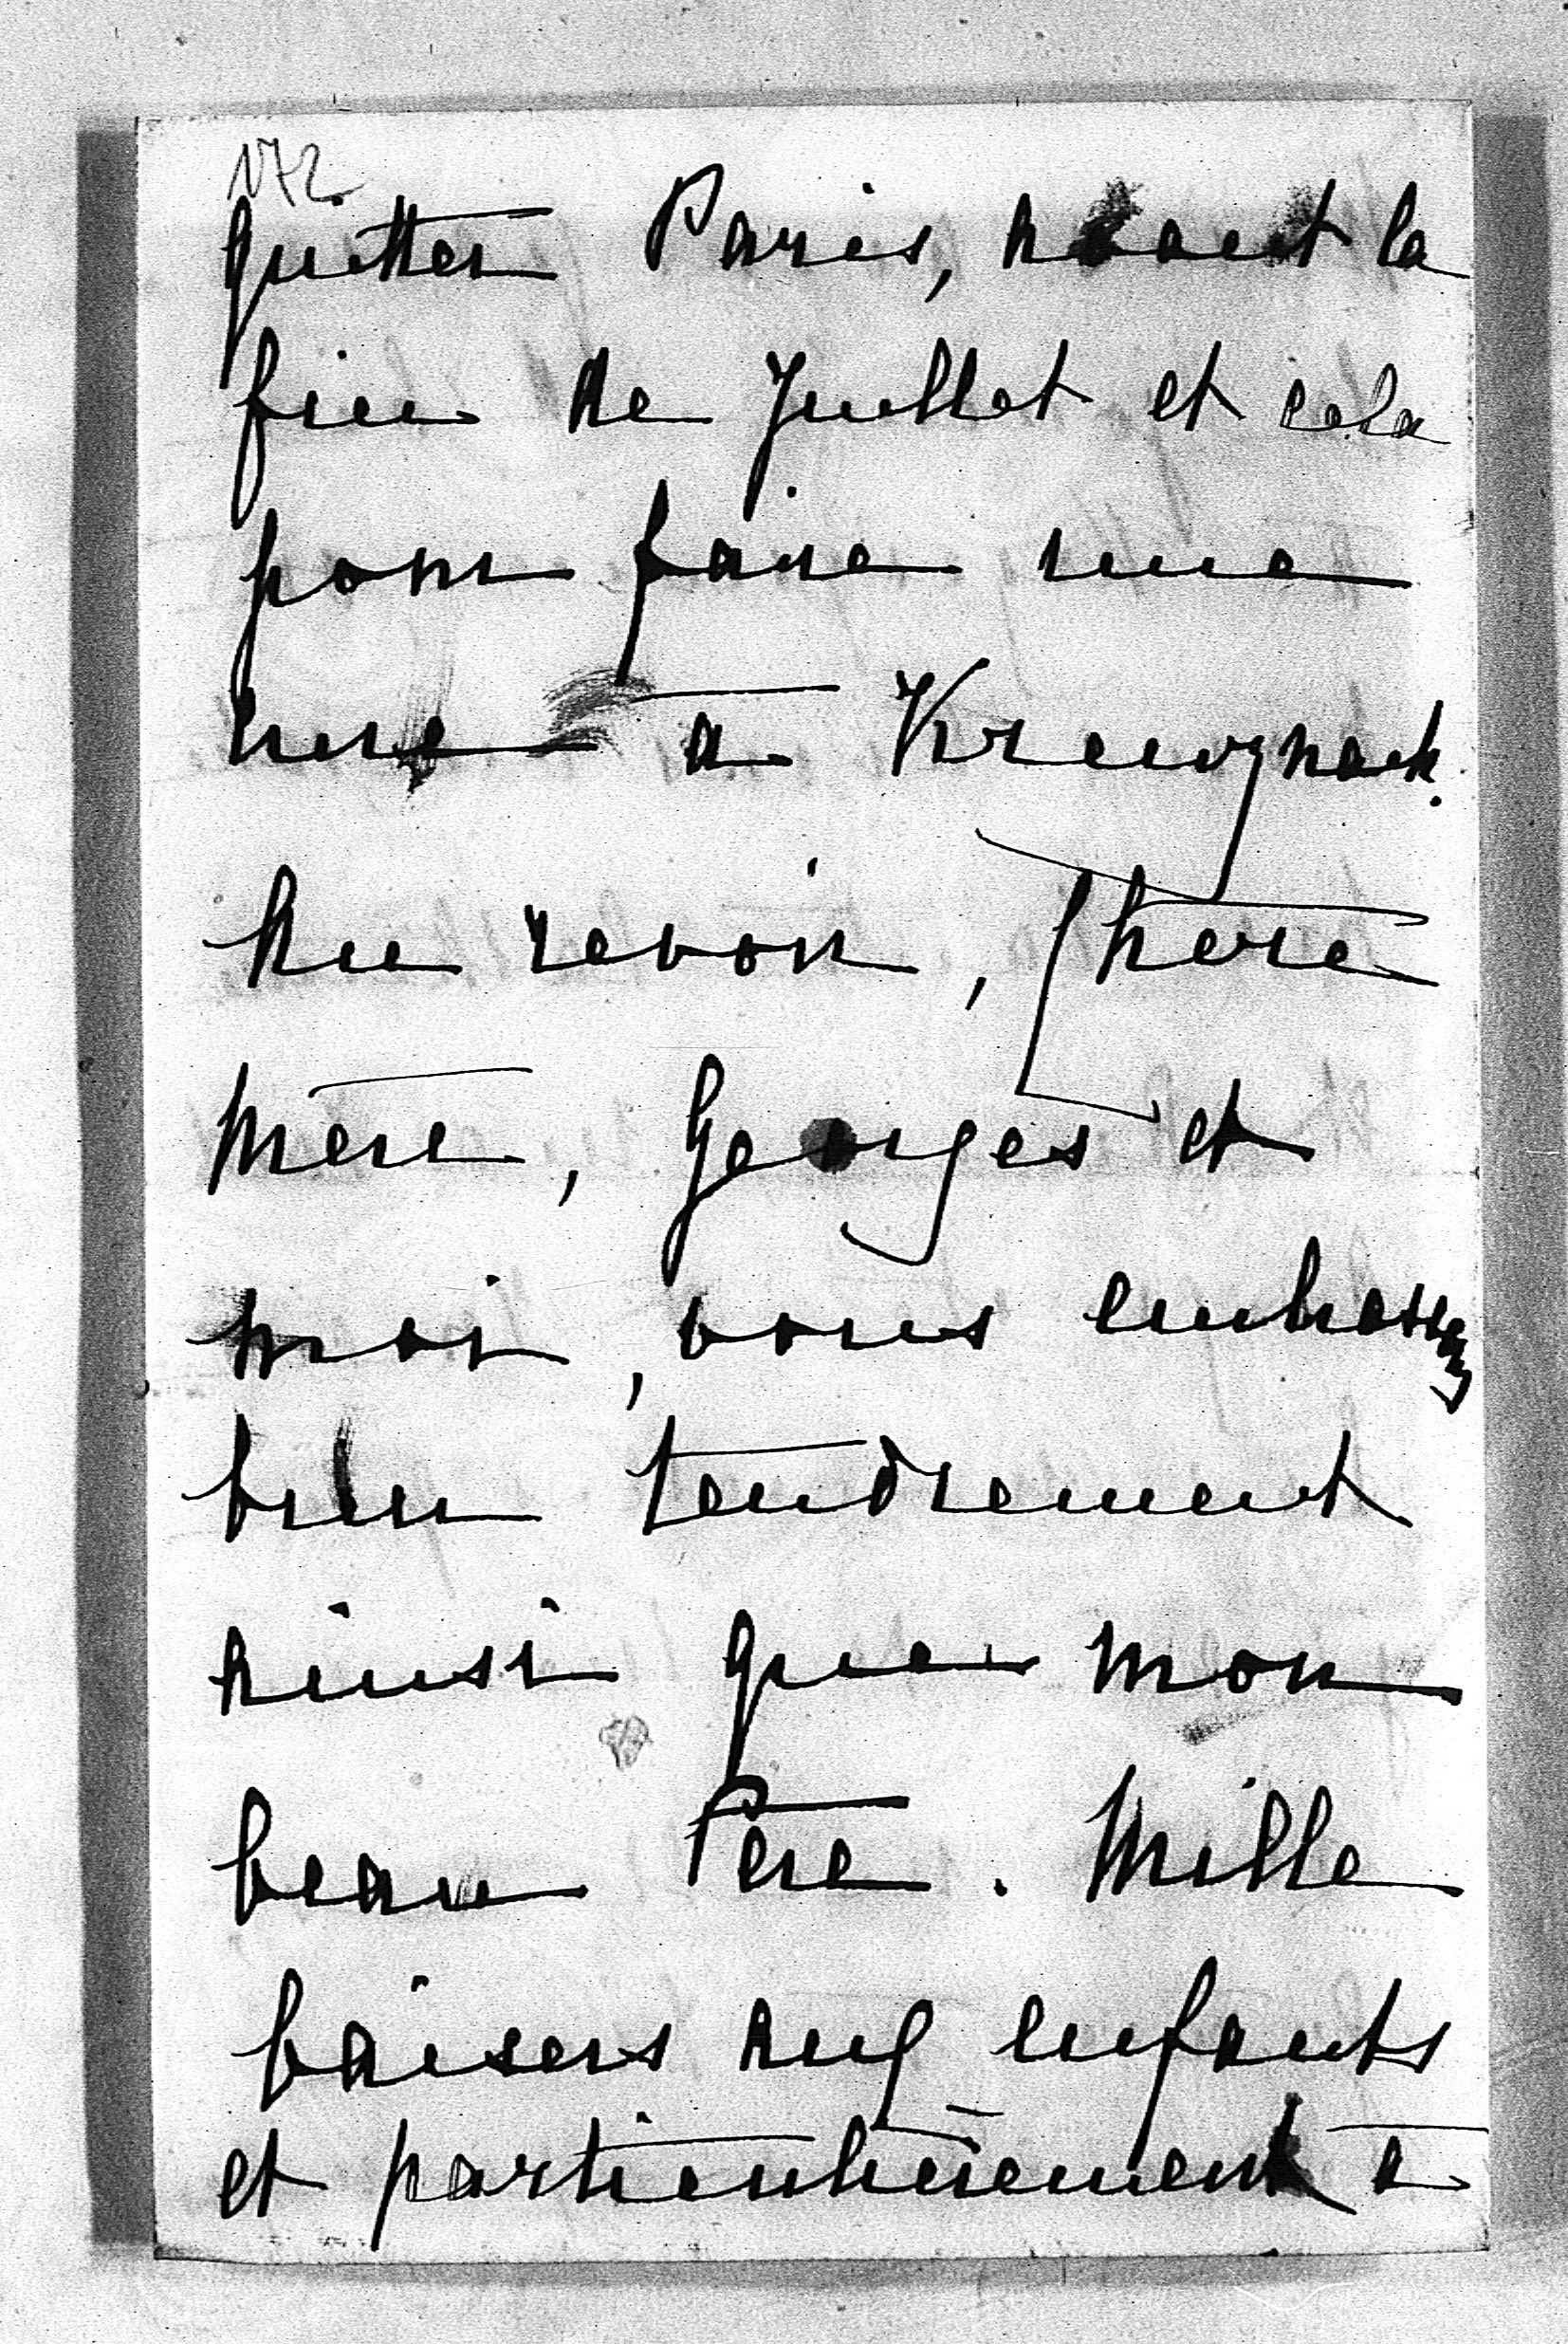 172
quitter Paris, avant la
fin de Juillet et cela
pour faire une
cure à Kreuznack.
Au revoir, chère
mère, Georges et
moi, vous embrassons
bien tendrement
ainsi que mon
beau Père. Mille
baisers aux enfants
et particulièrement à